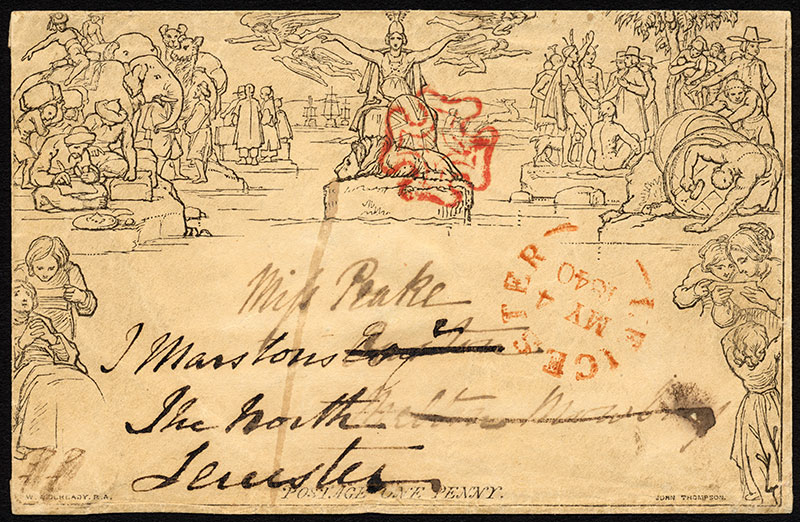 LEICESTER
MY 4
1840
Miss Peake
J Marstons
The North
Leicester
POSTAGE ONE PENNY.
W. MULREADY. R.A.
JOHN THOMPSON.